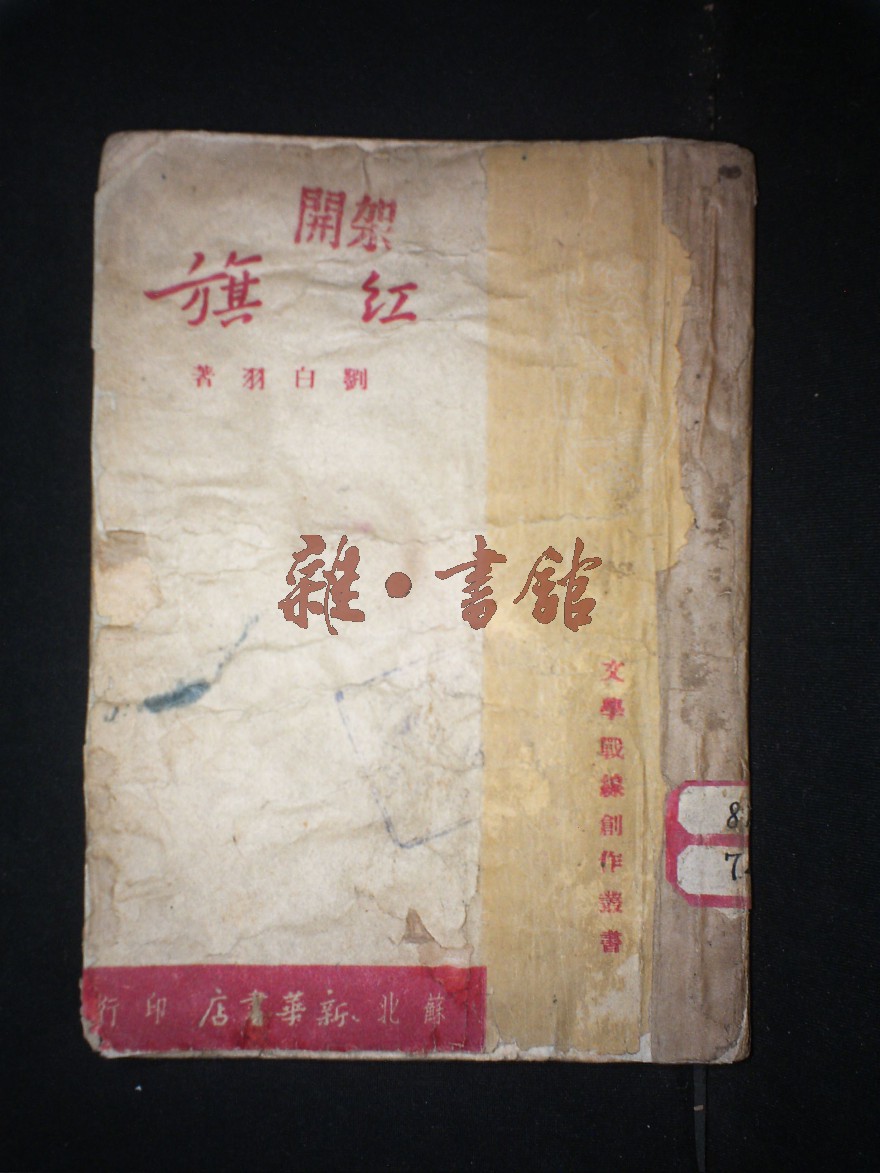 開架
红旗
劉白羽著
雜·書舘
文學戰線創作叢書
8
7
蘇北新華書店印行